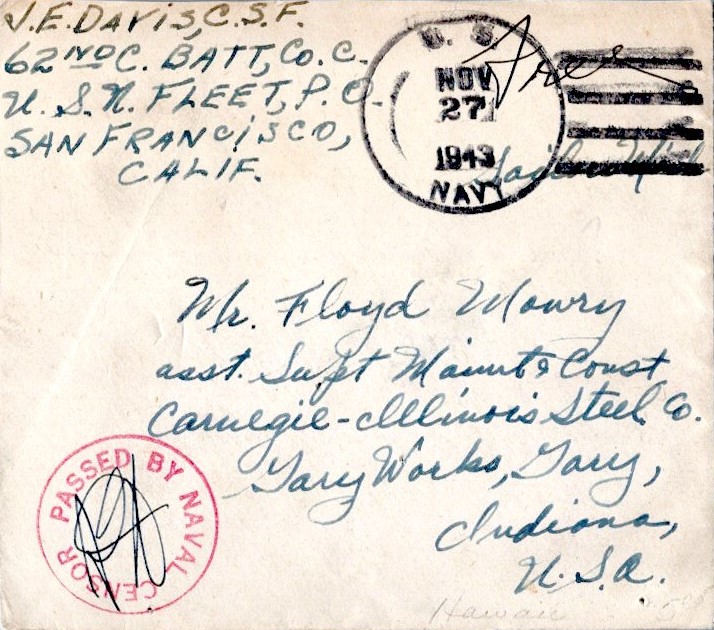 J.E. DAVIS, C.S.F.
62ND C. BATT, CO. C.
U. S. N. FLEET, P. O.
SAN FRANCISCO,
CALIF.
U. S.
NOV
27
1943
NAVY
Free
Mr. Floyd Mowry
asst. Supt Maint & Const
Carnegie-Illinois Steel Co.
Gary Works, Gary,
Indiana,
U. S. A.
PASSED BY NAVAL CENSOR
Hawaii